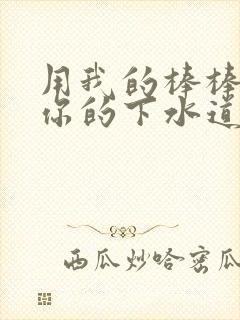 用我的棒棒
你的下水道
西瓜炒哈密瓜